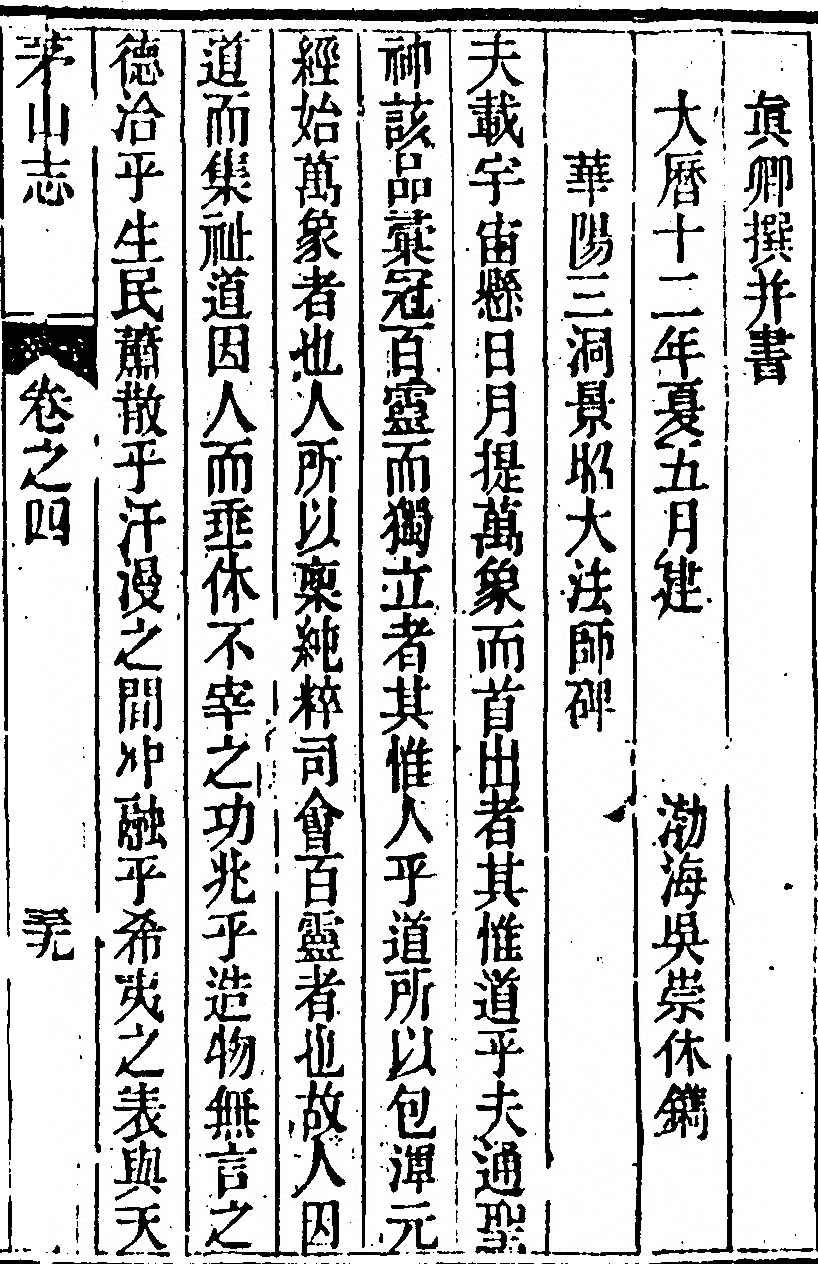 真卿撰并書
大曆十二年夏五月建 渤海吳崇休鐫
華陽三洞景昭大法師碑
夫載宇宙懸日月提萬象而首出者其惟道乎夫通聖
神該品彚冠百靈而獨立者其惟人乎道所以包渾元
經始萬象者也人所以稟純粹司會百靈者也故人因
道而集祉道因人而垂休不宰之功兆乎造物無言之
德洽乎生民蕭散乎汗漫之間冲融乎希夷之表與天
茅山志 卷之四